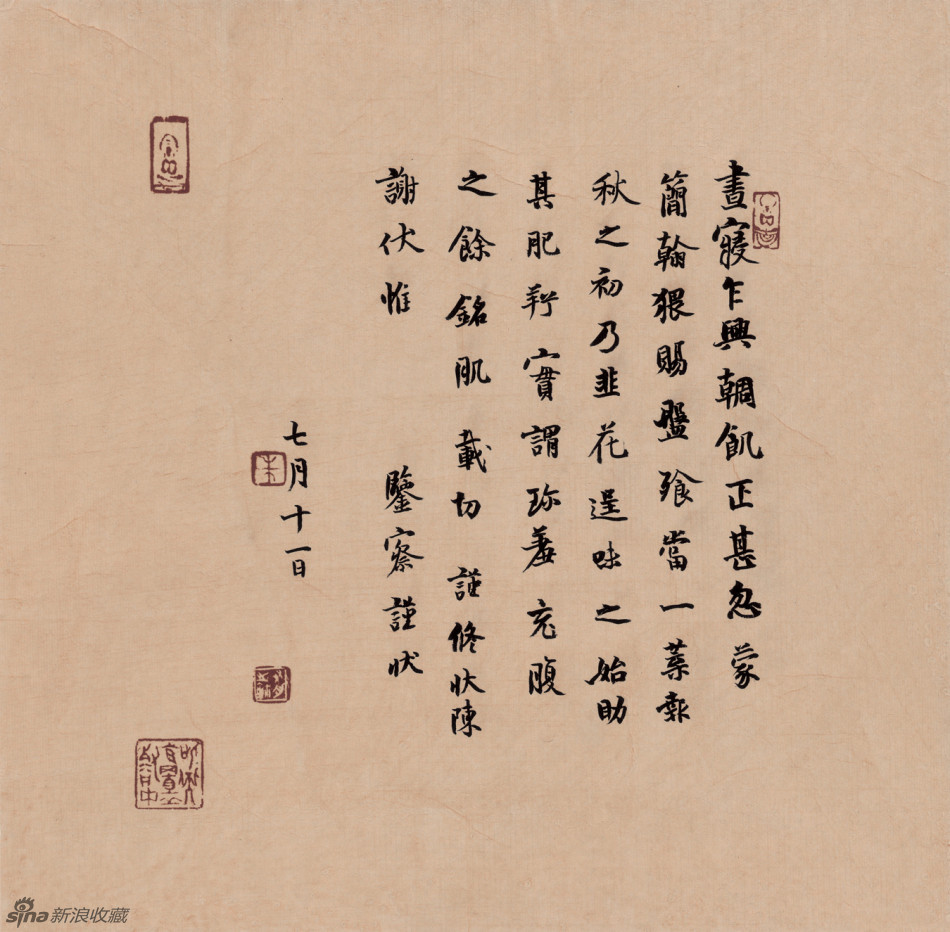 晝寢乍興朝飢正甚忽蒙
簡翰猥賜盤飧當一葉報
秋之初乃韭花逞味之始助
其肥羜實謂珍羞充腹
之餘銘肌載切謹修狀陳
謝伏惟鑒察謹狀
七月十一日
sina新浪收藏